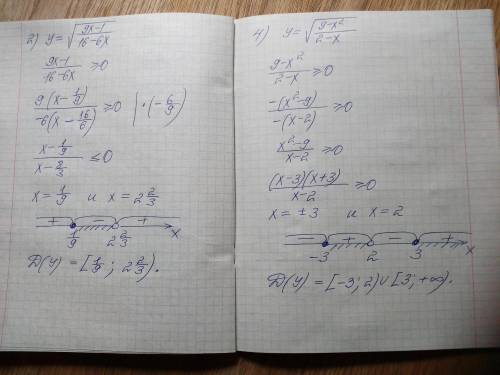 2) y = √((9x-1)/(16-6x))
(9x-1)/(16-6x) ≥ 0
9(x - 1/9)/(-6(x - 16/6)) ≥ 0 | · (-6/9)
(x - 1/9)/(x - 2/3) ≤ 0
x = 1/9 и x = 2 2/3
+ − +
1/9 2 2/3 x
D(y) = [1/9; 2 2/3).
4) y = √((9-x²)/(2-x))
(9-x²)/(2-x) ≥ 0
-(x²-9)/(-(x-2)) ≥ 0
(x²-9)/(x-2) ≥ 0
(x-3)(x+3)/(x-2) ≥ 0
x = ±3 и x = 2
− + − +
-3 2 3 x
D(y) = [-3; 2) ∪ [3; +∞).